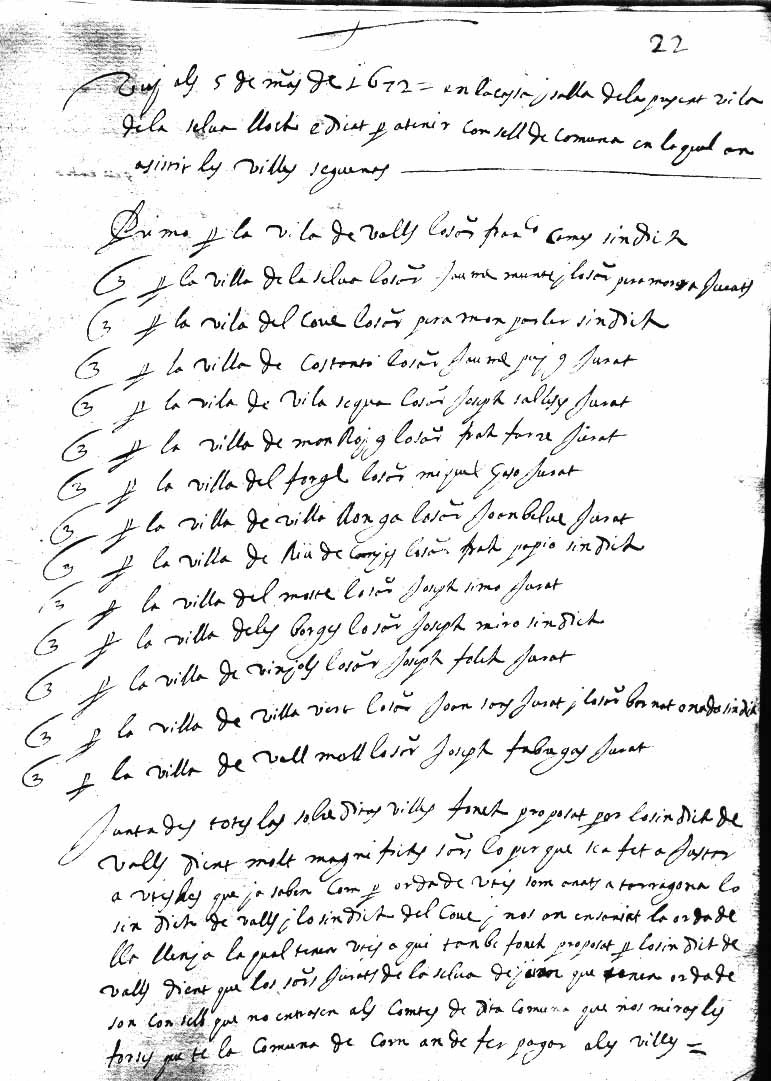 22
Vuy als 5 de mars de 1672 = en la casa j salla de la present vila
de la selva lloch edicat p atenir consell de comuna en lo qual an
asistit les villes seguents
Primo p la vila de valls losor fran co comes sindich
p la villa de la selva losor Jaume munte j losor pera Jurats
p la vila del Cove losor pera mon parler sindich
p la villa de Costanti losor Jaume puj g Jurat
p la vila de vila sequa losor Joseph salles Jurat
p la villa de mon Roj g losor frah torre Jurat
p la villa del forgs losor miquel gaso Jurat
p la villa de villa llonga losor Joan belve Jurat
p la villa de Riu de Comjs losor frah papio sindich
p la villa del moste losor Joseph simo Jurat
p la villa deles borges losor Joseph miro sindich
p la villa de vinjols losor Joseph folch Jurat
p la villa de villa vert losor Joan Jurat j losor bernat sindich
p la villa de vall moll losor Joseph fabregas Jurat
Juntades totes las sobre ditas villes fonch proposat per losindich de
valls dient molt magnifichs sors lo per que sea fet a Justar
a vtes es que ja saben com p orde de vtes som anats a tarragona lo
sindich de valls j lo sindich del Cove j nos an enseniat la orde de
lla llenja la qual tenen vtes a qui tanbe fonch proposat p losindich de
valls dient que los sors Jurats de la selva que orde de
son consell que no entrasen als Comtes de dita Comuna que nos miras les
forses que te la Comuna de Corn an de fer pagar ales villes =